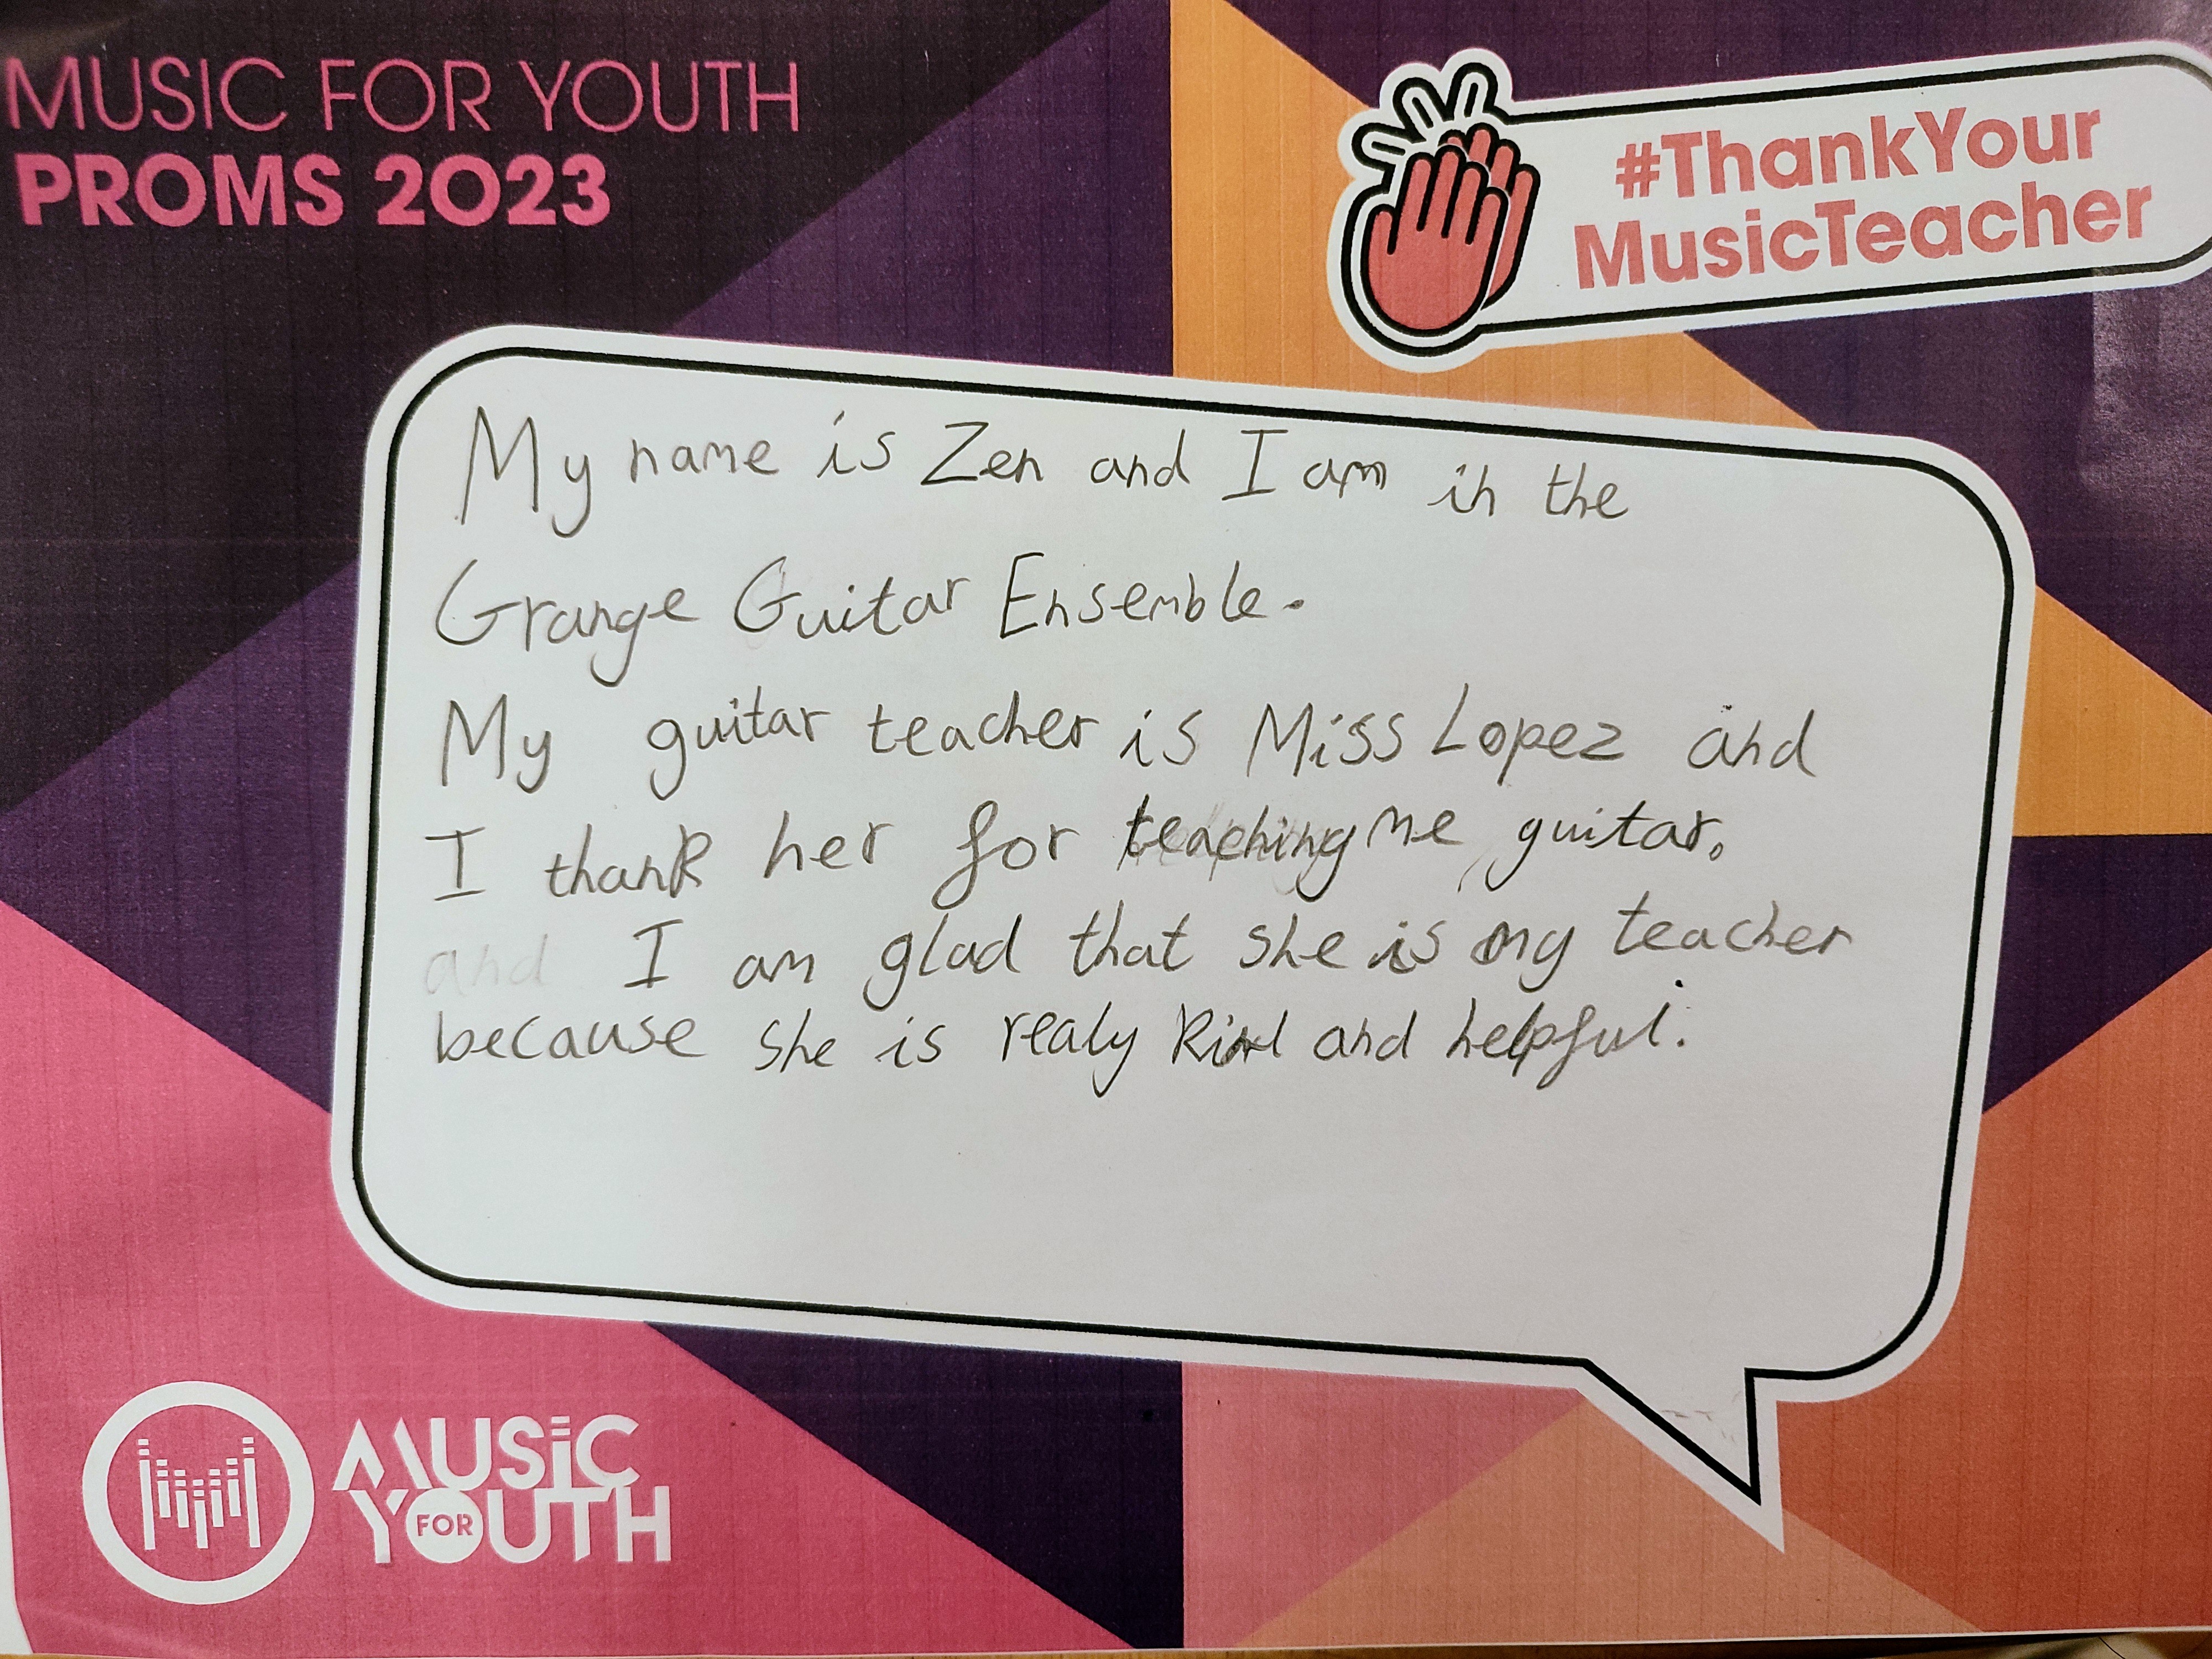 MUSIC FOR YOUTH
PROMS 2023
#ThankYour
MusicTeacher
My name is Zen and I am in the
Grange Guitar Ensemble.
My guitar teacher is Miss Lopez and
I thank her for teaching me guitar.
and I am glad that she is my teacher
because she is realy kind and helpful.
MUSiC
FOR
YOUTH